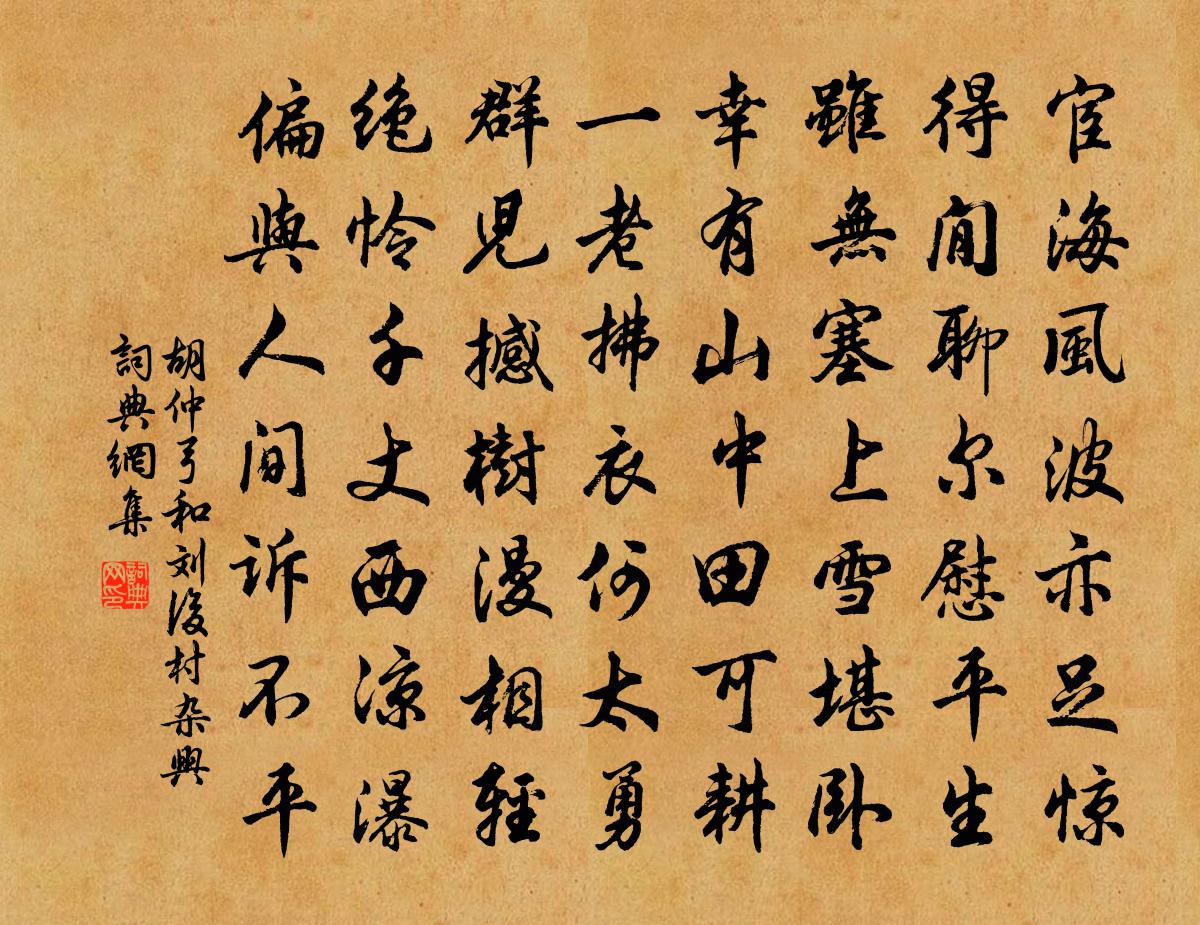 宦海風波亦足惊
得閒聊尔慰平生
雖無塞上雪堪卧
幸有山中田可耕
一老拂衣何太勇
群児撼樹漫相輕
绝怜千丈西凉瀑
偏與人间诉不平
胡仲弓和刘後村杂興
詞典網集
詞典网印